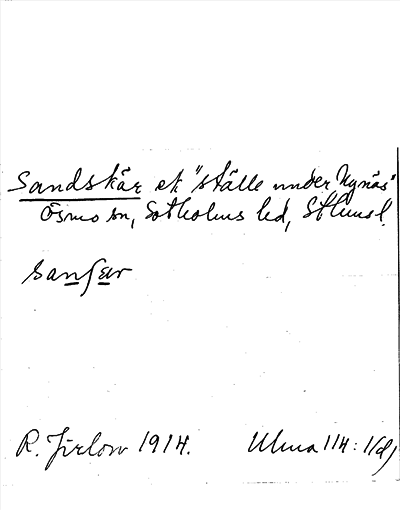 Sandskär ett "ställe under Nynäs"
Ösmo sn, Sotholms hd, Sthlms l.
sanʃær
R. Jirlow 1914. Ulma 114:1(d)